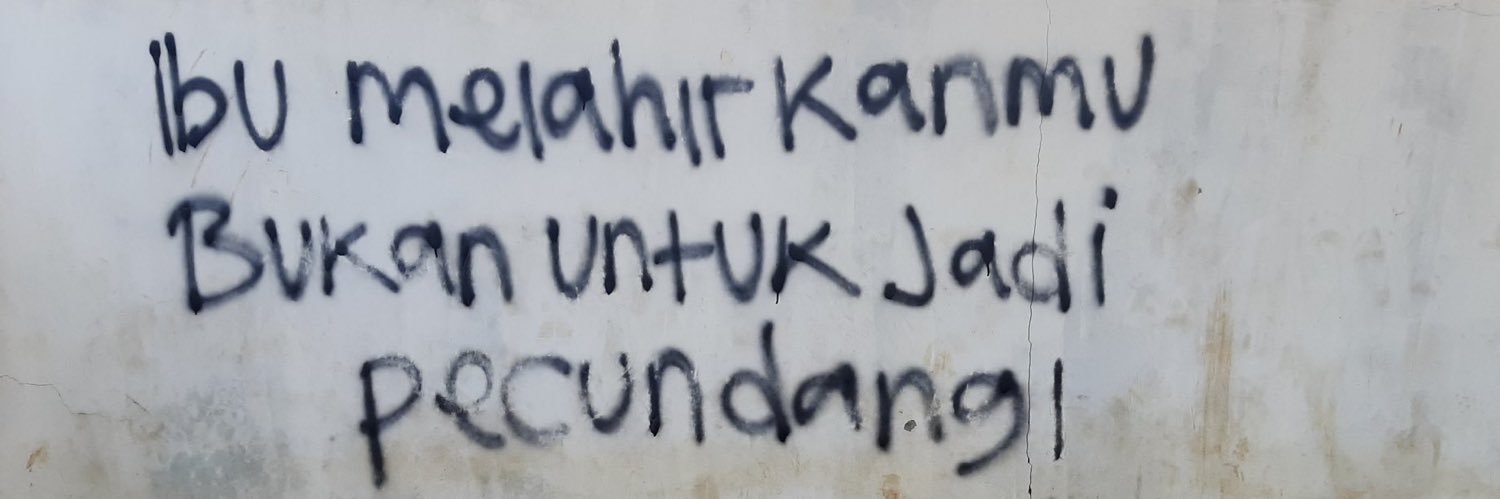 Ibu melahirkanmu
Bukan untuk Jadi
pecundang!